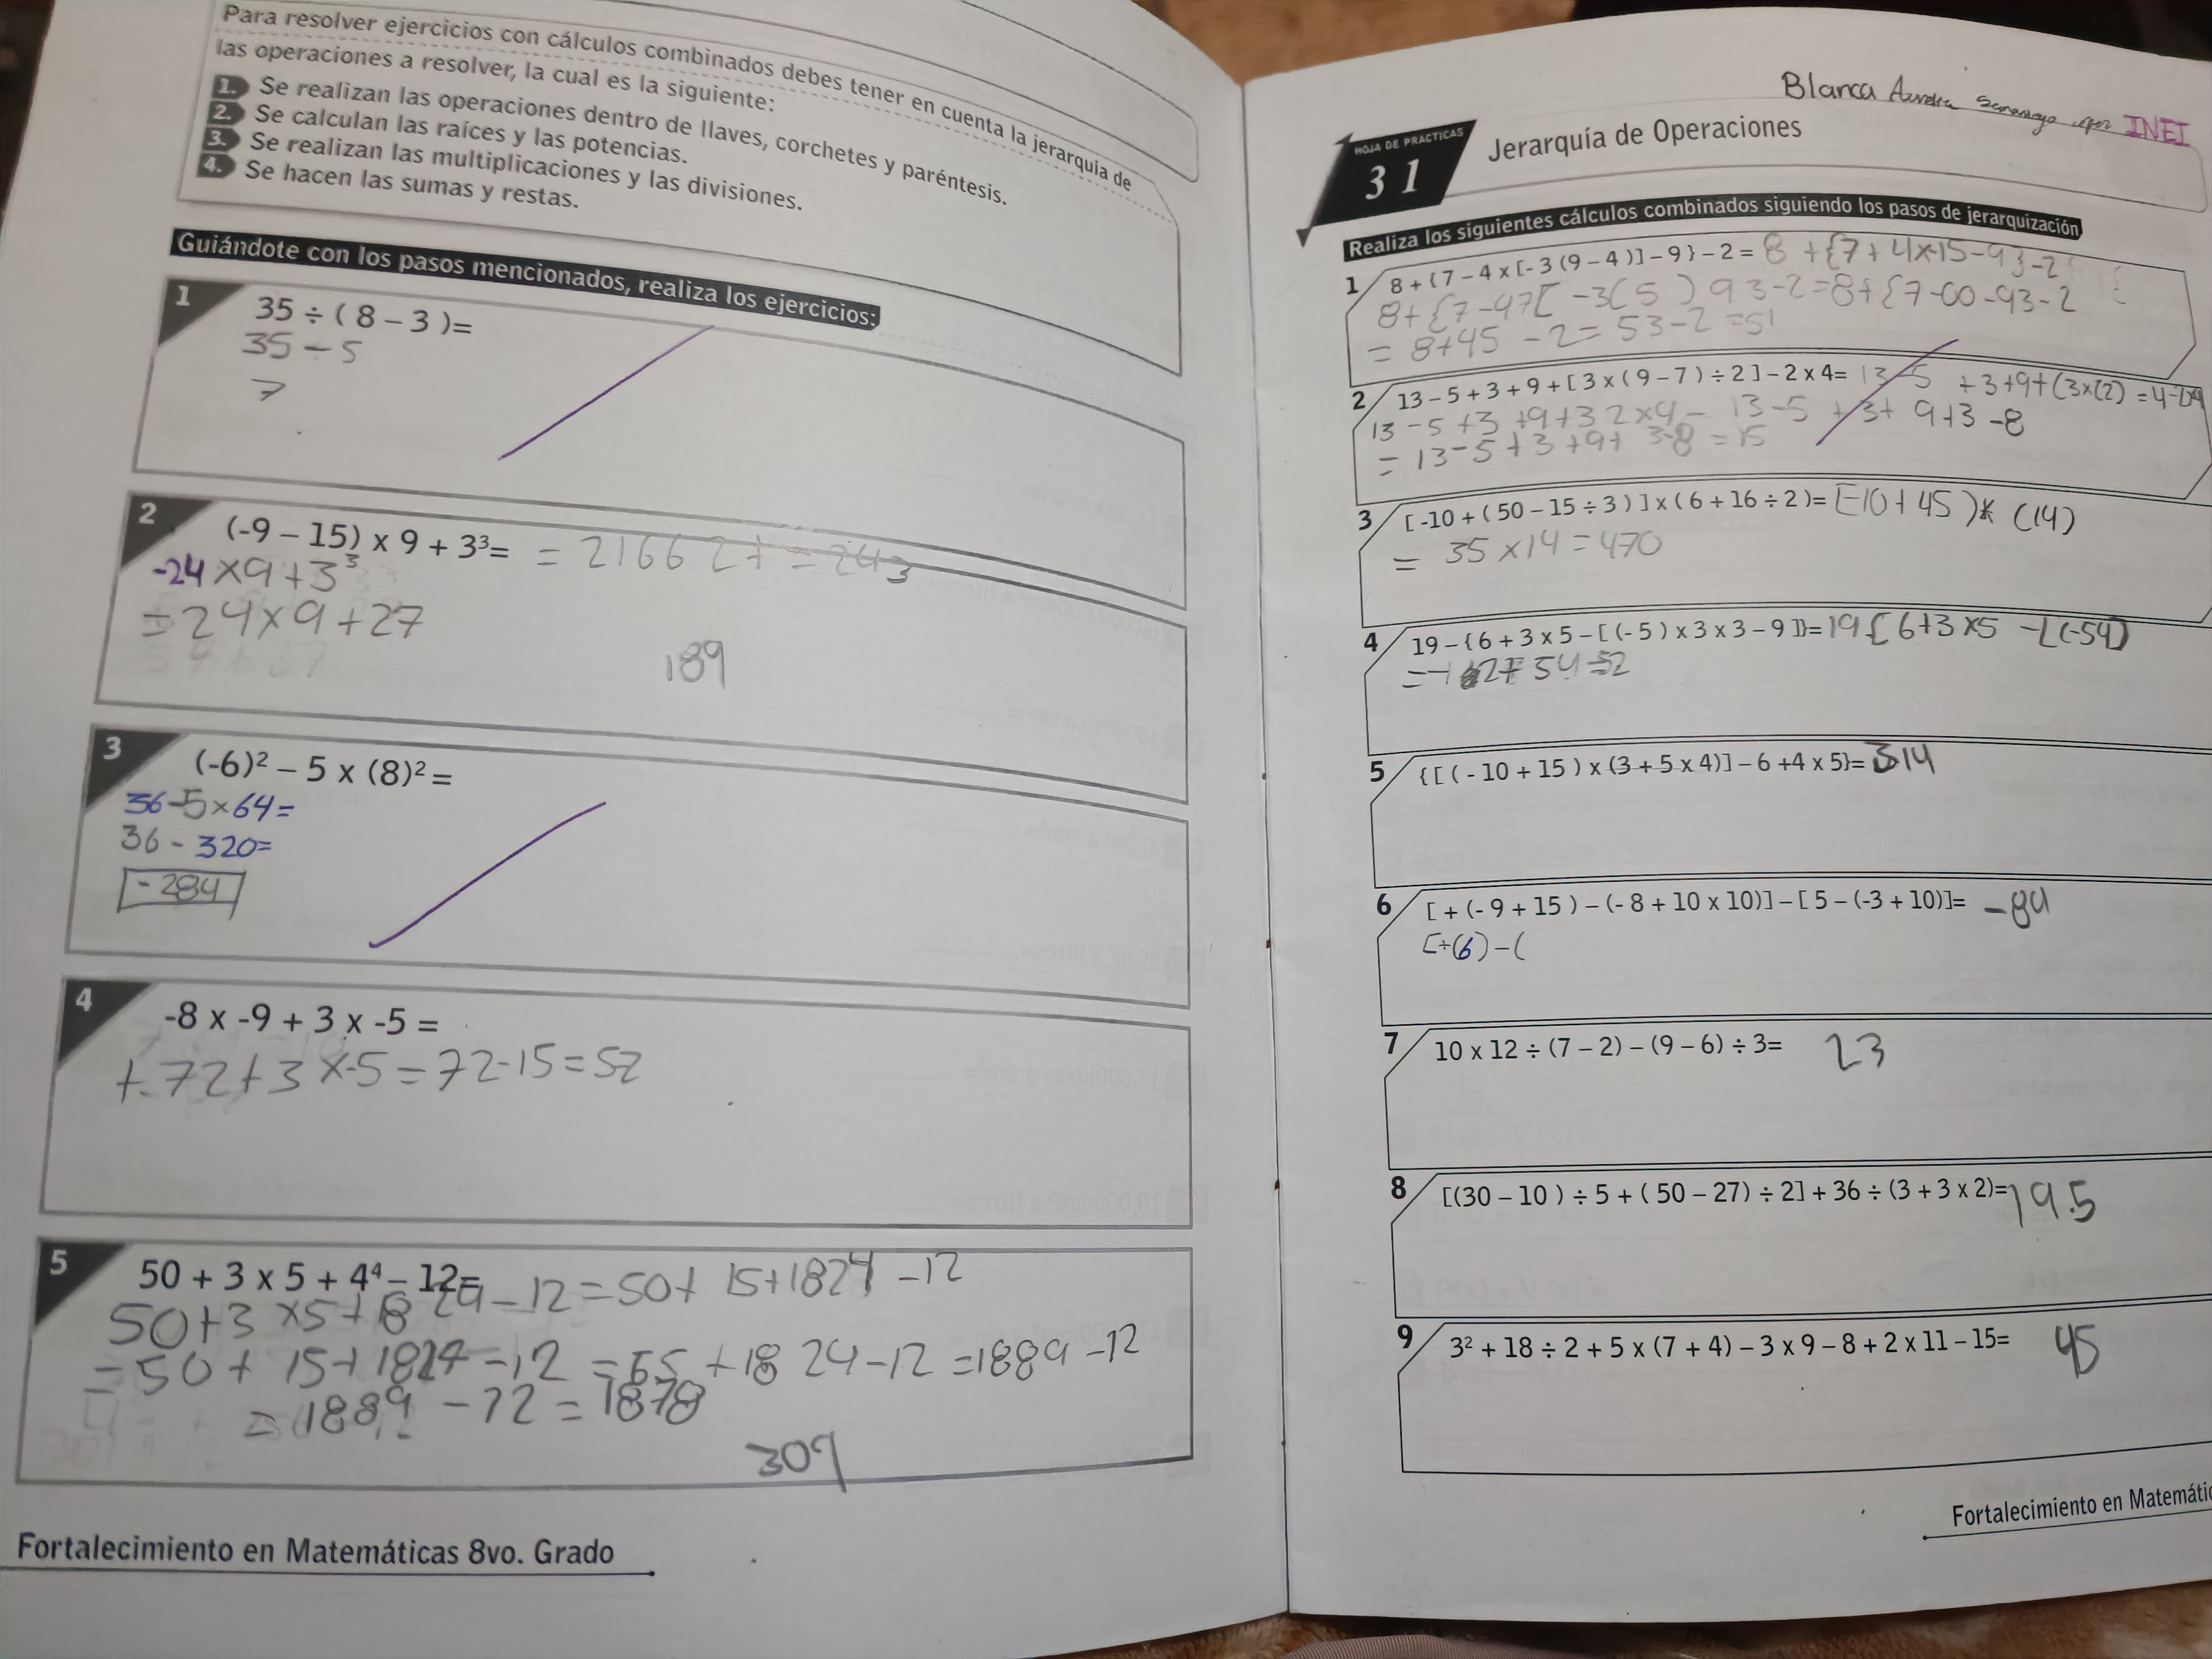 Para resolver ejercicios con cálculos combinados debes tener en cuenta la jerarquía de
las operaciones a resolver, la cual es la siguiente:
1. Se realizan las operaciones dentro de llaves, corchetes y paréntesis.
2. Se calculan las raíces y las potencias.
3. Se realizan las multiplicaciones y las divisiones.
4. Se hacen las sumas y restas.
Guiándote con los pasos mencionados, realiza los ejercicios:
1
35 ÷ ( 8 – 3 )=
35 – 5
7
2
(-9 – 15) x 9 + 3³= = 216 + 27 = 243
-24 x 9 + 3³
= 24 x 9 + 27
189
3
(-6)² – 5 x (8)² =
36 - 5 x 64 =
36 - 320 =
- 284
4
-8 x -9 + 3 x -5 =
+ 72 + 3 x -5 = 72 - 15 = 52
5
50 + 3 x 5 + 4⁴ – 12=
50 + 3 x 5 + 1824 - 12 = 50 + 15 + 1824 - 12
= 50 + 15 + 1824 - 12 = 65 + 1824 - 12 = 1889 - 12
= 1889 - 12 = 1878
309
Fortalecimiento en Matemáticas 8vo. Grado
Blanca INEI
HOJA DE PRÁCTICAS
31
Jerarquía de Operaciones
Realiza los siguientes cálculos combinados siguiendo los pasos de jerarquización
1 8 + {7 – 4 x [- 3 (9 – 4 )] – 9 } – 2 = 8 + {7 + 4 x -15 - 9} - 2
= 8 + 45 - 2 = 53 - 2 = 51
2 13 – 5 + 3 + 9 + [ 3 x ( 9 – 7 ) ÷ 2 ] – 2 x 4= 13 - 5 + 3 + 9 + (3 x (2)
13 - 5 + 3 + 9 + 3 2 x 4 - 13 - 5 + 3 + 9 + 3 - 8
= 13 - 5 + 3 + 9 + 3 - 8 = 15
3 [ -10 + ( 50 – 15 ÷ 3 ) ] x ( 6 + 16 ÷ 2 )= [-10 + 45 ) x (14)
= 35 x 14 = 470
4 19 – { 6 + 3 x 5 – [ (- 5 ) x 3 x 3 – 9 ]}= 19 { 6 + 3 x 5 - [(-54)
5 { [ ( - 10 + 15 ) x (3 + 5 x 4)] – 6 +4 x 5}= 314
6 [ + (- 9 + 15 ) – (- 8 + 10 x 10)] – [ 5 – (-3 + 10)]= -84
[+(6) - (
7 10 x 12 ÷ (7 – 2) – (9 – 6) ÷ 3= 23
8 [(30 – 10 ) ÷ 5 + ( 50 – 27) ÷ 2] + 36 ÷ (3 + 3 x 2)= 19.5
9 3² + 18 ÷ 2 + 5 x (7 + 4) – 3 x 9 – 8 + 2 x 11 – 15= 45
Fortalecimiento en